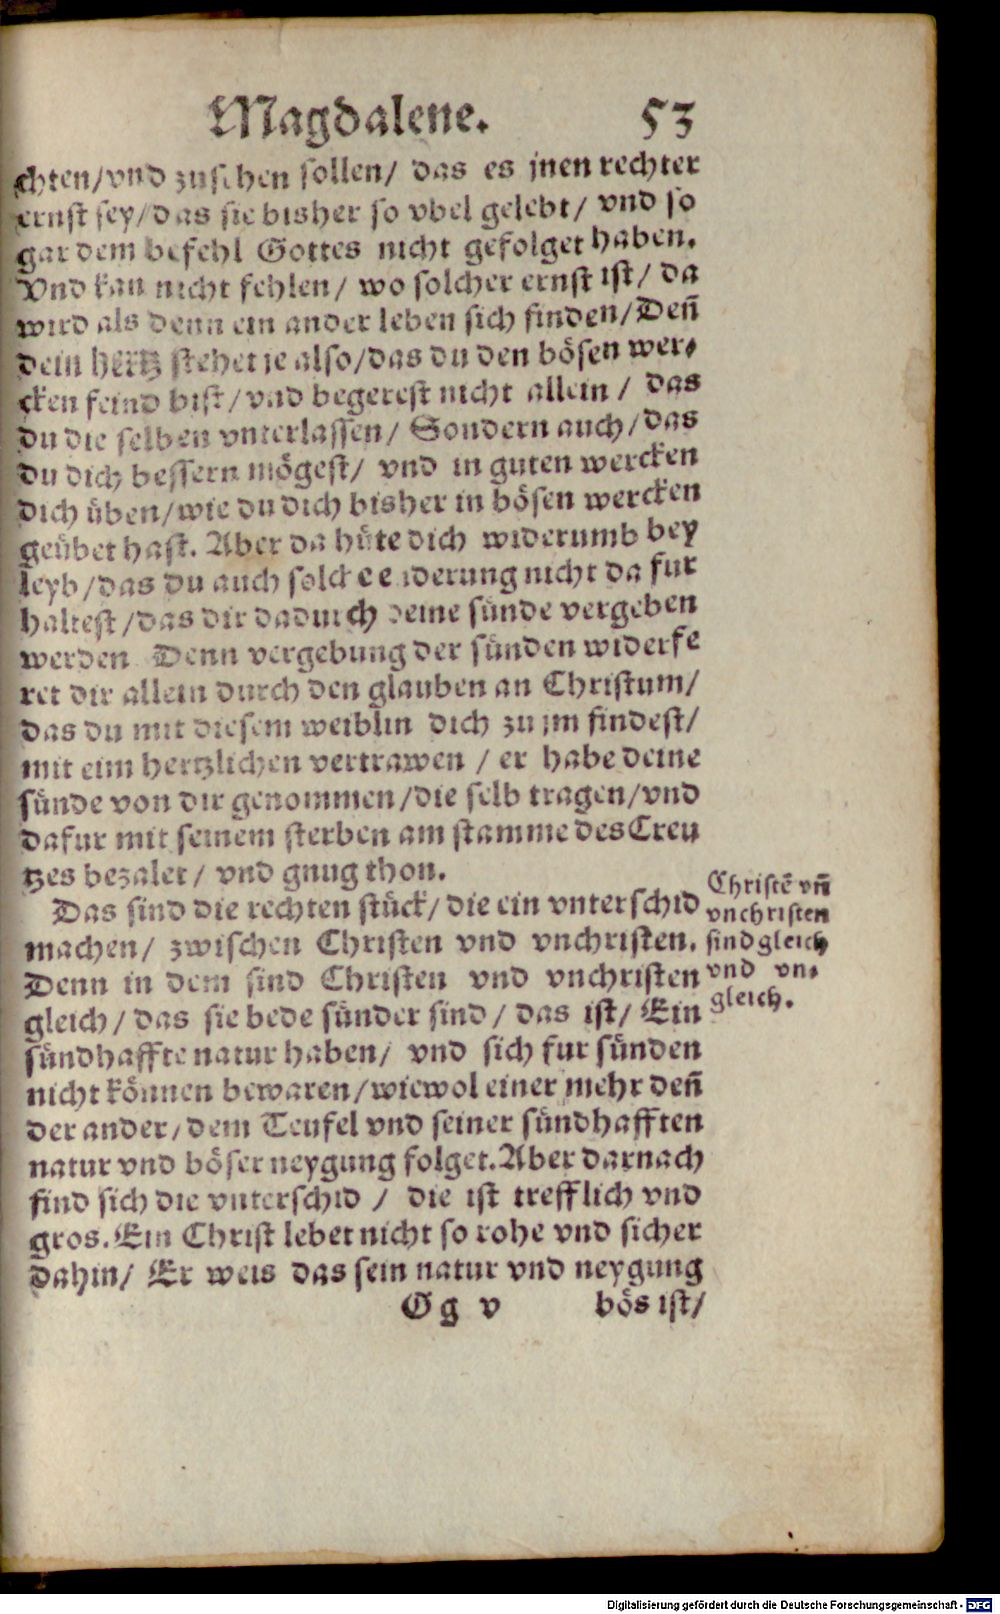 Magdalene. 53
chten/vnd zusehen sollen/ das es jnen rechter
ernst sey/das sie bisher so vbel gelebt/ vnd so
gar dem befehl Gottes nicht gefolget haben.
Vnd kan nicht fehlen/ wo solcher ernst ist/ da
wird als denn ein ander leben sich finden/Deñ
dein hertz stehet je also/das du den bösen wer-
cken feind bist/vnd begerest nicht allein/ das
du die selben vnterlassen/ Sondern auch/das
du dich bessern mögest/ vnd in guten wercken
dich üben/wie du dich bisher in bösen wercken
geübet hast. Aber da hüte dich widerumb bey
leyb/das du auch solche enderung nicht da fur
haltest/das dir dadurch deine sünde vergeben
werden Denn vergebung der sünden widerfe
ret dir allein durch den glauben an Christum/
das du mit diesem weiblin dich zu jm findest/
mit eim hertzlichen vertrawen / er habe deine
sünde von dir genommen/die selb tragen/vnd
dafur mit seinem sterben am stamme des Creu
tzes bezalet/ vnd gnug thon.
Das sind die rechten stück/die ein vnterschid
machen/ zwischen Christen vnd vnchristen.
Denn in dem sind Christen vnd vnchristen
gleich/das sie bede sünder sind/ das ist/ Ein
sündhaffte natur haben/ vnd sich fur sünden
nicht können bewaren/wiewol einer mehr deñ
der ander/dem Teufel vnd seiner sündhafften
natur vnd böser neygung folget. Aber darnach
find sich die vnterschid / die ist trefflich vnd
gros. Ein Christ lebet nicht so rohe vnd sicher
dahin/ Er weis das sein natur vnd neygung
Gg v bös ist/
Christē vñ
vnchristen
sind gleich
vnd vn-
gleich.
Digitalisierung gefördert durch die Deutsche Forschungsgemeinschaft - DFG